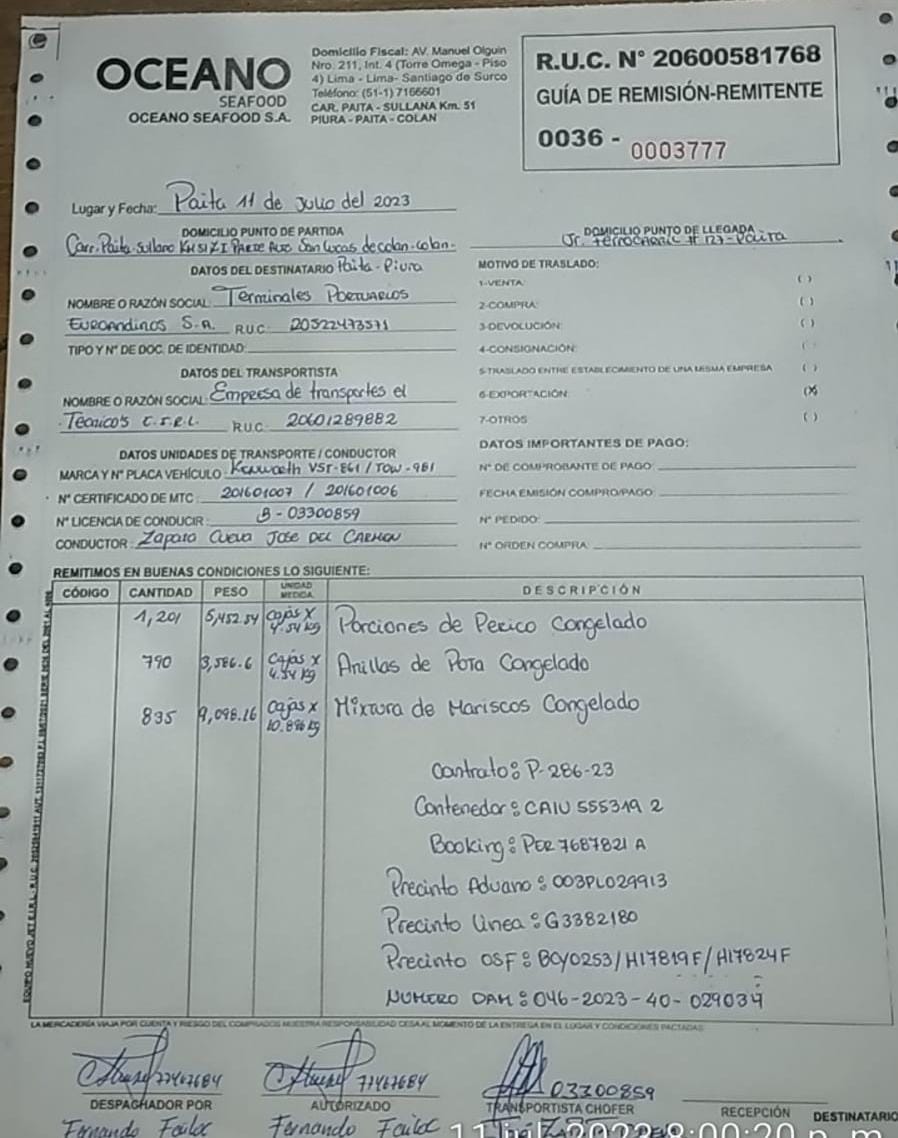 OCEANO
SEAFOOD
OCEANO SEAFOOD S.A.
Domicilio Fiscal: AV. Manuel Olguin
Nro. 211, Int. 4 (Torre Omega - Piso
4) Lima - Lima- Santiago de Surco
Teléfono: (51-1) 7166601
CAR. PAITA - SULLANA Km. 51
PIURA - PAITA - COLAN
R.U.C. N° 20600581768
GUÍA DE REMISIÓN-REMITENTE
0036 - 0003777
Lugar y Fecha: Paita 11 de Julio del 2023
DOMICILIO PUNTO DE PARTIDA
Carr. Paita Sullana KM 51 Z.I PARTE ALTO San Lucas de colan-colan-
Paita-Piura
DOMICILIO PUNTO DE LLEGADA
Jr. Ferrocarril # 127-Paita
DATOS DEL DESTINATARIO
NOMBRE O RAZÓN SOCIAL: Terminales PORTUARIOS
EUROANDINOS S.A. R.U.C: 20522473571
TIPO Y N° DE DOC. DE IDENTIDAD:
DATOS DEL TRANSPORTISTA
NOMBRE O RAZÓN SOCIAL: Empresa de transportes el
Tecnico's R.U.C: 20601289882
DATOS UNIDADES DE TRANSPORTE / CONDUCTOR
MARCA Y N° PLACA VEHÍCULO: Kenworth V5T-861 / TOW-981
N° CERTIFICADO DE MTC: 201601007 / 201601006
N° LICENCIA DE CONDUCIR: B-03300859
CONDUCTOR: Zapata Cueva JOSE DEL CARMEN
MOTIVO DE TRASLADO:
1-VENTA: ( )
2-COMPRA: ( )
3-DEVOLUCIÓN: ( )
4-CONSIGNACIÓN: ( )
5-TRASLADO ENTRE ESTABLECIMIENTO DE UNA MISMA EMPRESA ( )
6-EXPORTACIÓN: (X)
7-OTROS ( )
DATOS IMPORTANTES DE PAGO:
N° DE COMPROBANTE DE PAGO:
FECHA EMISIÓN COMPRO/PAGO:
N° PEDIDO:
N° ORDEN COMPRA:
REMITIMOS EN BUENAS CONDICIONES LO SIGUIENTE:
CÓDIGO CANTIDAD PESO UNIDAD MEDIDA DESCRIPCIÓN
1,201 5,452.54 cajas x 4.54 kg Porciones de Perico Congelado
790 3,586.6 Cajas x 4.54 kg Anillas de POTA Congelado
835 9,098.16 cajas x 10.896 kg Mixtura de Mariscos Congelado
Contrato: P-286-23
Contenedor: CAIU 555319 2
Booking: PER 7687821 A
Precinto Aduana: 003PL029913
Precinto Linea: G3382180
Precinto OSF: BOY0253/H17819F/H17824F
NUMERO DAM: 046-2023-40-029034
LA MERCADERÍA VIAJA POR CUENTA Y RIESGO DEL COMPRADOR NUESTRA RESPONSABILIDAD CESA AL MOMENTO DE LA ENTREGA EN EL LUGAR Y CONDICIONES PACTADAS
77467684
DESPACHADOR POR
Fernando Failoc
77467684
AUTORIZADO
Fernando Failoc
03300859
TRANSPORTISTA CHOFER
RECEPCIÓN DESTINATARIO